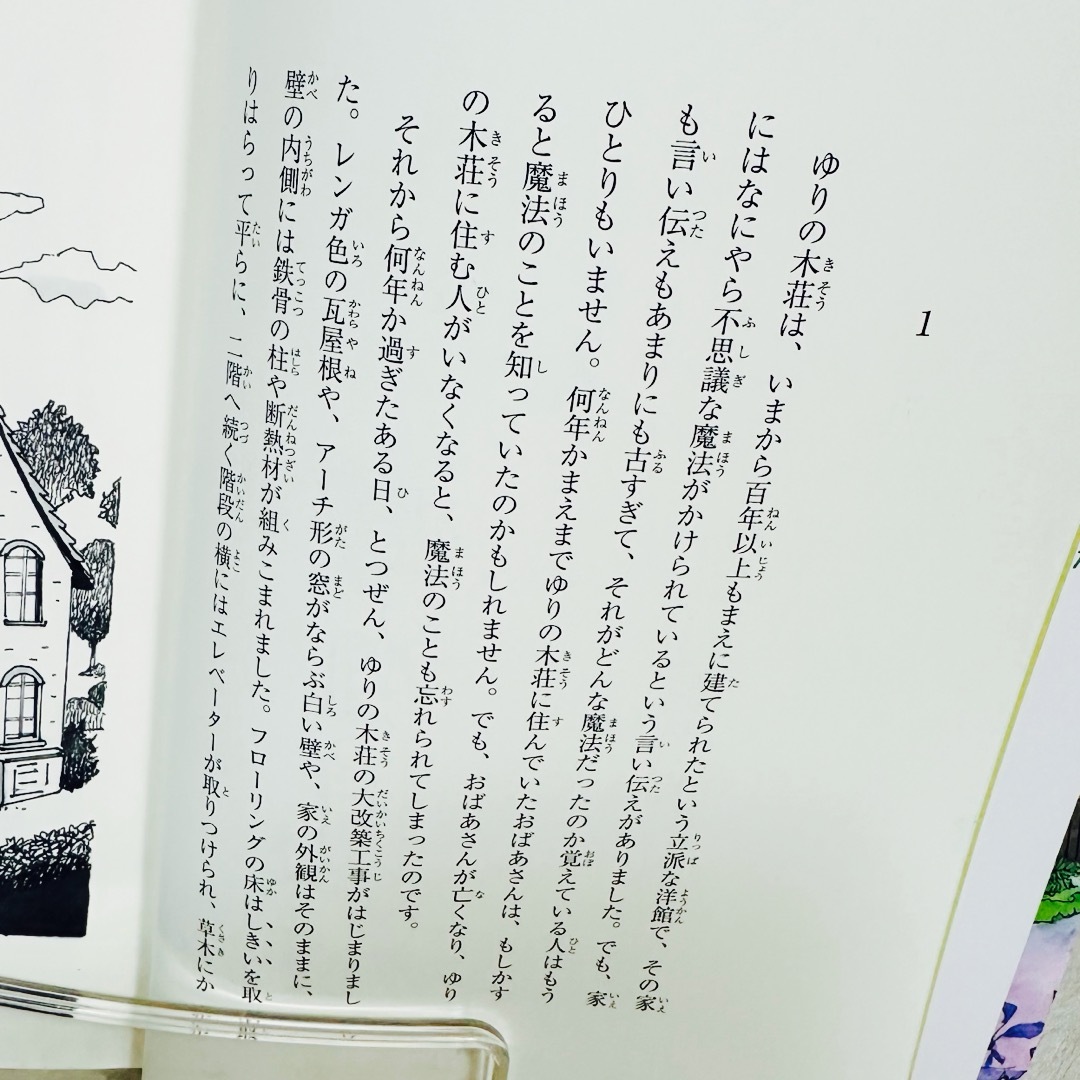 1
ゆりの木荘は、いまから百年以上もまえに建てられたという立派な洋館で、その家
にはなにやら不思議な魔法がかけられているという言い伝えがありました。でも、家
も言い伝えもあまりにも古すぎて、それがどんな魔法だったのか覚えている人はもう
ひとりもいません。何年かまえまでゆりの木荘に住んでいたおばあさんは、もしかす
ると魔法のことを知っていたのかもしれません。でも、おばあさんが亡くなり、ゆり
の木荘に住む人がいなくなると、魔法のことも忘れられてしまったのです。
それから何年か過ぎたある日、とつぜん、ゆりの木荘の大改築工事がはじまりまし
た。レンガ色の瓦屋根や、アーチ形の窓がならぶ白い壁や、家の外観はそのままに、
壁の内側には鉄骨の柱や断熱材が組みこまれました。フローリングの床はしきいを取
りはらって平らに、二階へ続く階段の横にはエレベーターが取りつけられ、草木にか